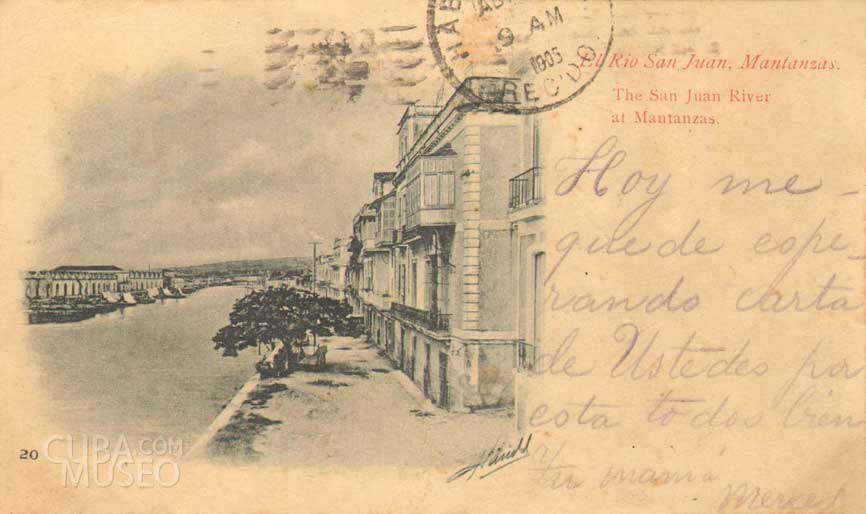 HAB
9 AM
1905
REC'DO
El Rio San Juan, Mantanzas.
The San Juan River
at Mantanzas.
Hoy me
quede espe-
rando carta
de Ustedes por
esta todos bien
Tu mamá
Merced
20
CUBA.COM
MUSEO